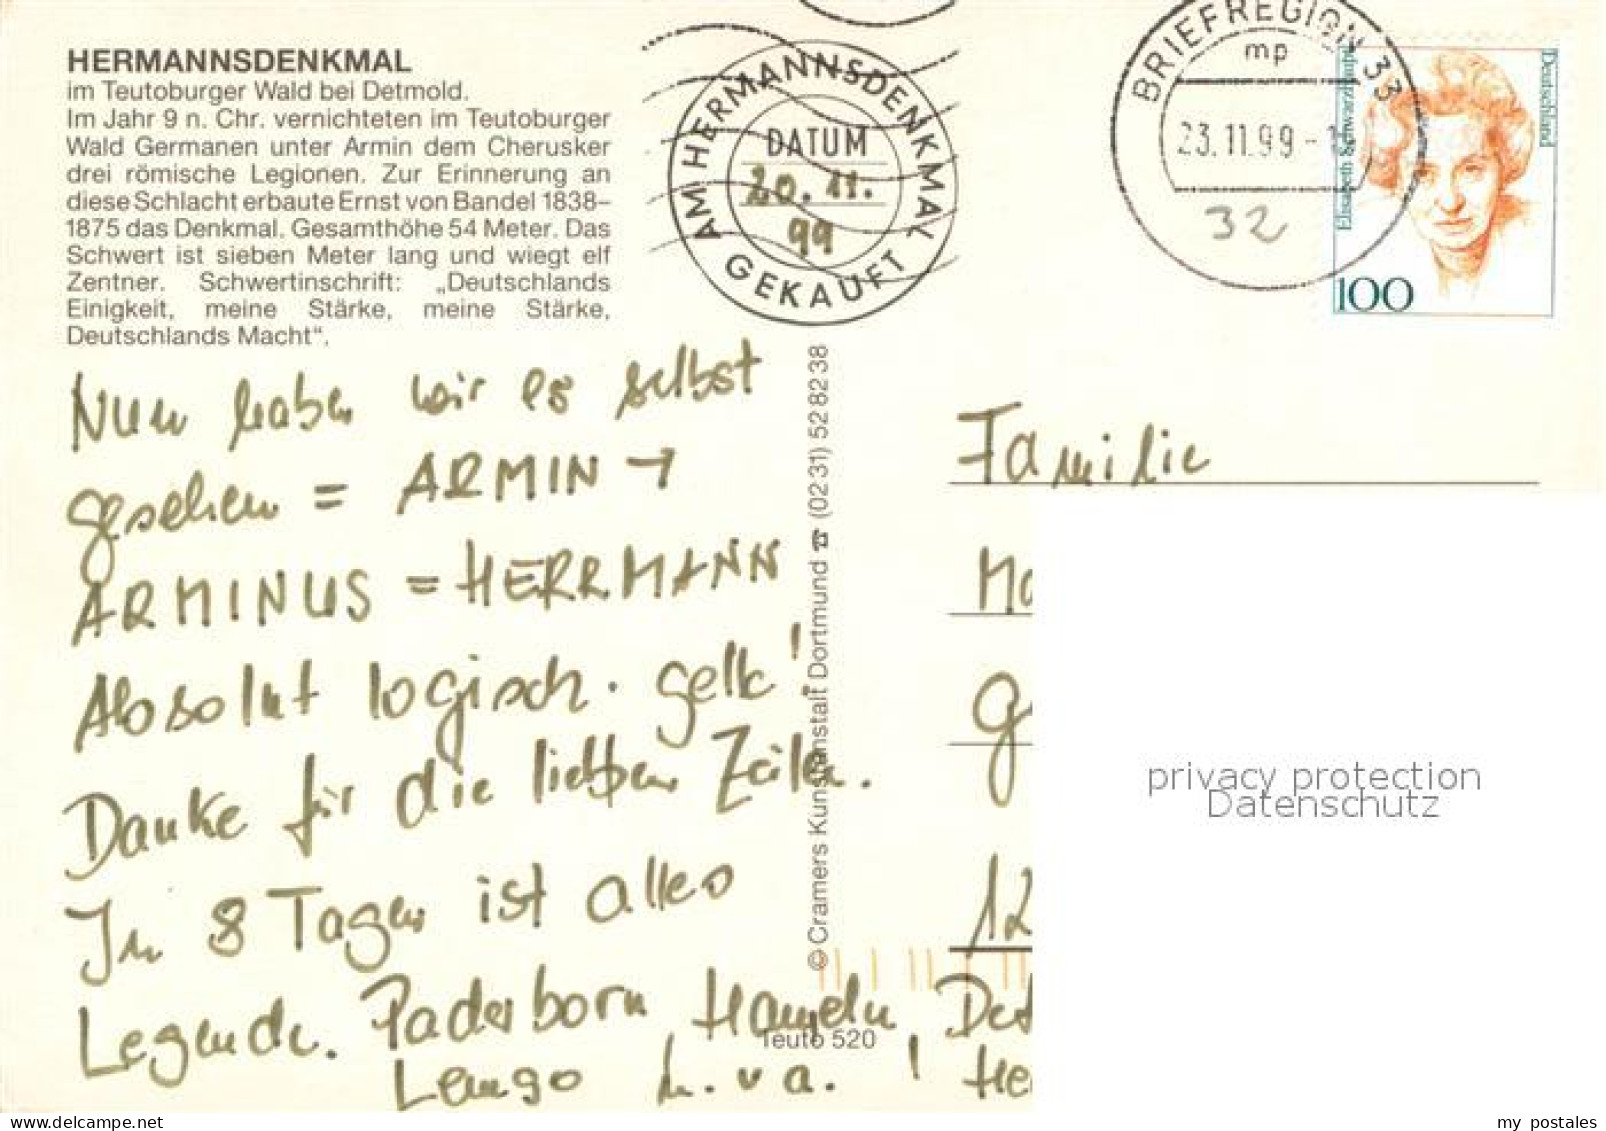 HERMANNSDENKMAL
im Teutoburger Wald bei Detmold.
Im Jahr 9 n. Chr. vernichteten im Teutoburger
Wald Germanen unter Armin dem Cherusker
drei römische Legionen. Zur Erinnerung an
diese Schlacht erbaute Ernst von Bandel 1838–
1875 das Denkmal. Gesamthöhe 54 Meter. Das
Schwert ist sieben Meter lang und wiegt elf
Zentner. Schwertinschrift: „Deutschlands
Einigkeit, meine Stärke, meine Stärke,
Deutschlands Macht“.
AM HERMANNSDENKMAL
DATUM
20.11.
99
GEKAUFT
BRIEFREGION 33
mp
23.11.99
32
Deutschland
Elisabeth Schwarzhaupt
100
Nun haben wir es selbst
gesehen = ARMIN →
ARMINUS = HERRMANN
Absolut logisch. gelle!
Danke für die lieben Zeilen.
In 8 Tagen ist alles
Legende. Paderborn Hameln Det
Lemgo u. v a. ! He
© Cramers Kunstanstalt Dortmund ☎ (02 31) 52 82 38
Teuto 520
Familie
Ma
G
12
privacy protection
Datenschutz
www.delcampe.net
my_postales